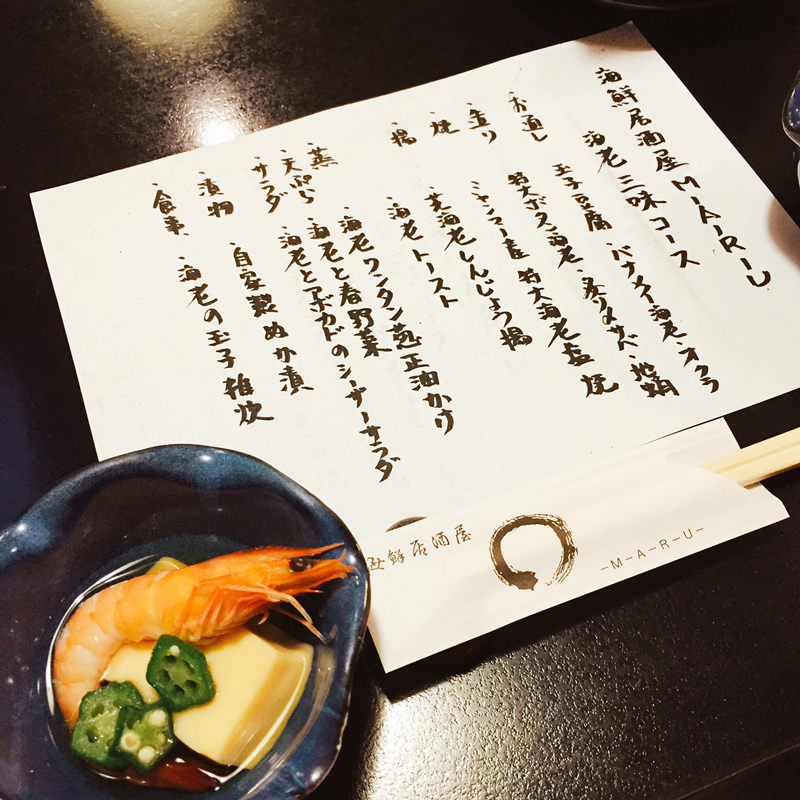 海鮮居酒屋 M-A-R-U
海老三昧コース
・お通し 玉子豆腐・バナメイ海老・オクラ
・造り 特大ボタン海老・炙り〆サバ・地蛸
・焼 ミャンマー産 特大海老塩焼
・揚 芝海老しんじょう揚
海老トースト
・蒸 海老ワンタン葱正油かけ
・天ぷら 海老と春野菜
・サラダ 海老とアボカドのシーザーサラダ
・漬物 自家製ぬか漬
・食事 海老の玉子雑炊
海鮮居酒屋
-M-A-R-U-